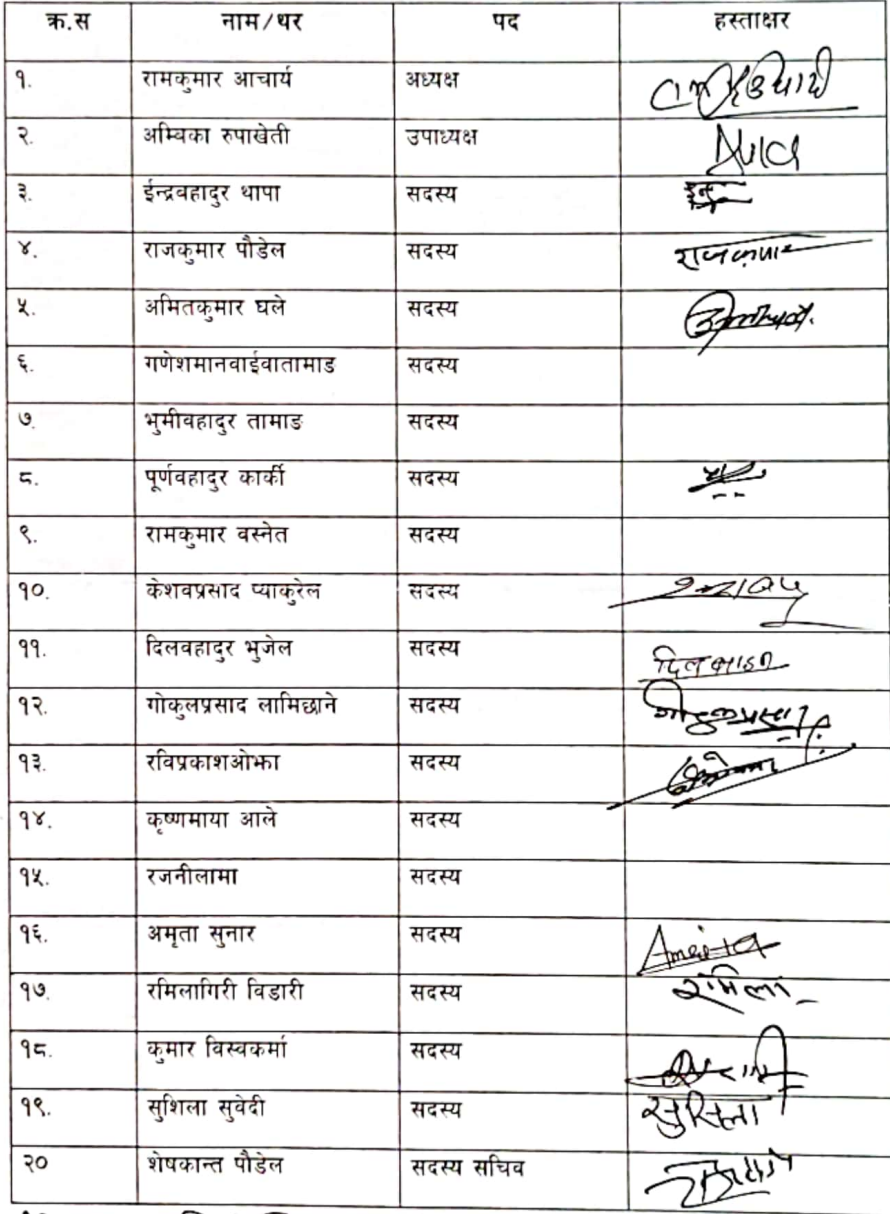 क्र.स नाम/थर पद हस्ताक्षर
१. रामकुमार आचार्य अध्यक्ष
२. अम्विका रुपाखेती उपाध्यक्ष
३. ईन्द्रवहादुर थापा सदस्य
४. राजकुमार पौडेल सदस्य राजकुमार
५. अमितकुमार घले सदस्य
६. गणेशमानवाईवातामाङ सदस्य
७. भुमीवहादुर तामाङ सदस्य
८. पूर्णवहादुर कार्की सदस्य
९. रामकुमार वस्नेत सदस्य
१०. केशवप्रसाद प्याकुरेल सदस्य
११. दिलवहादुर भुजेल सदस्य
१२. गोकुलप्रसाद लामिछाने सदस्य
१३. रविप्रकाशओझा सदस्य
१४. कृष्णमाया आले सदस्य
१५. रजनीलामा सदस्य
१६. अमृता सुनार सदस्य
१७. रमिलागिरी विडारी सदस्य
१८. कुमार विस्वकर्मा सदस्य
१९. सुशिला सुवेदी सदस्य
२० शेषकान्त पौडेल सदस्य सचिव